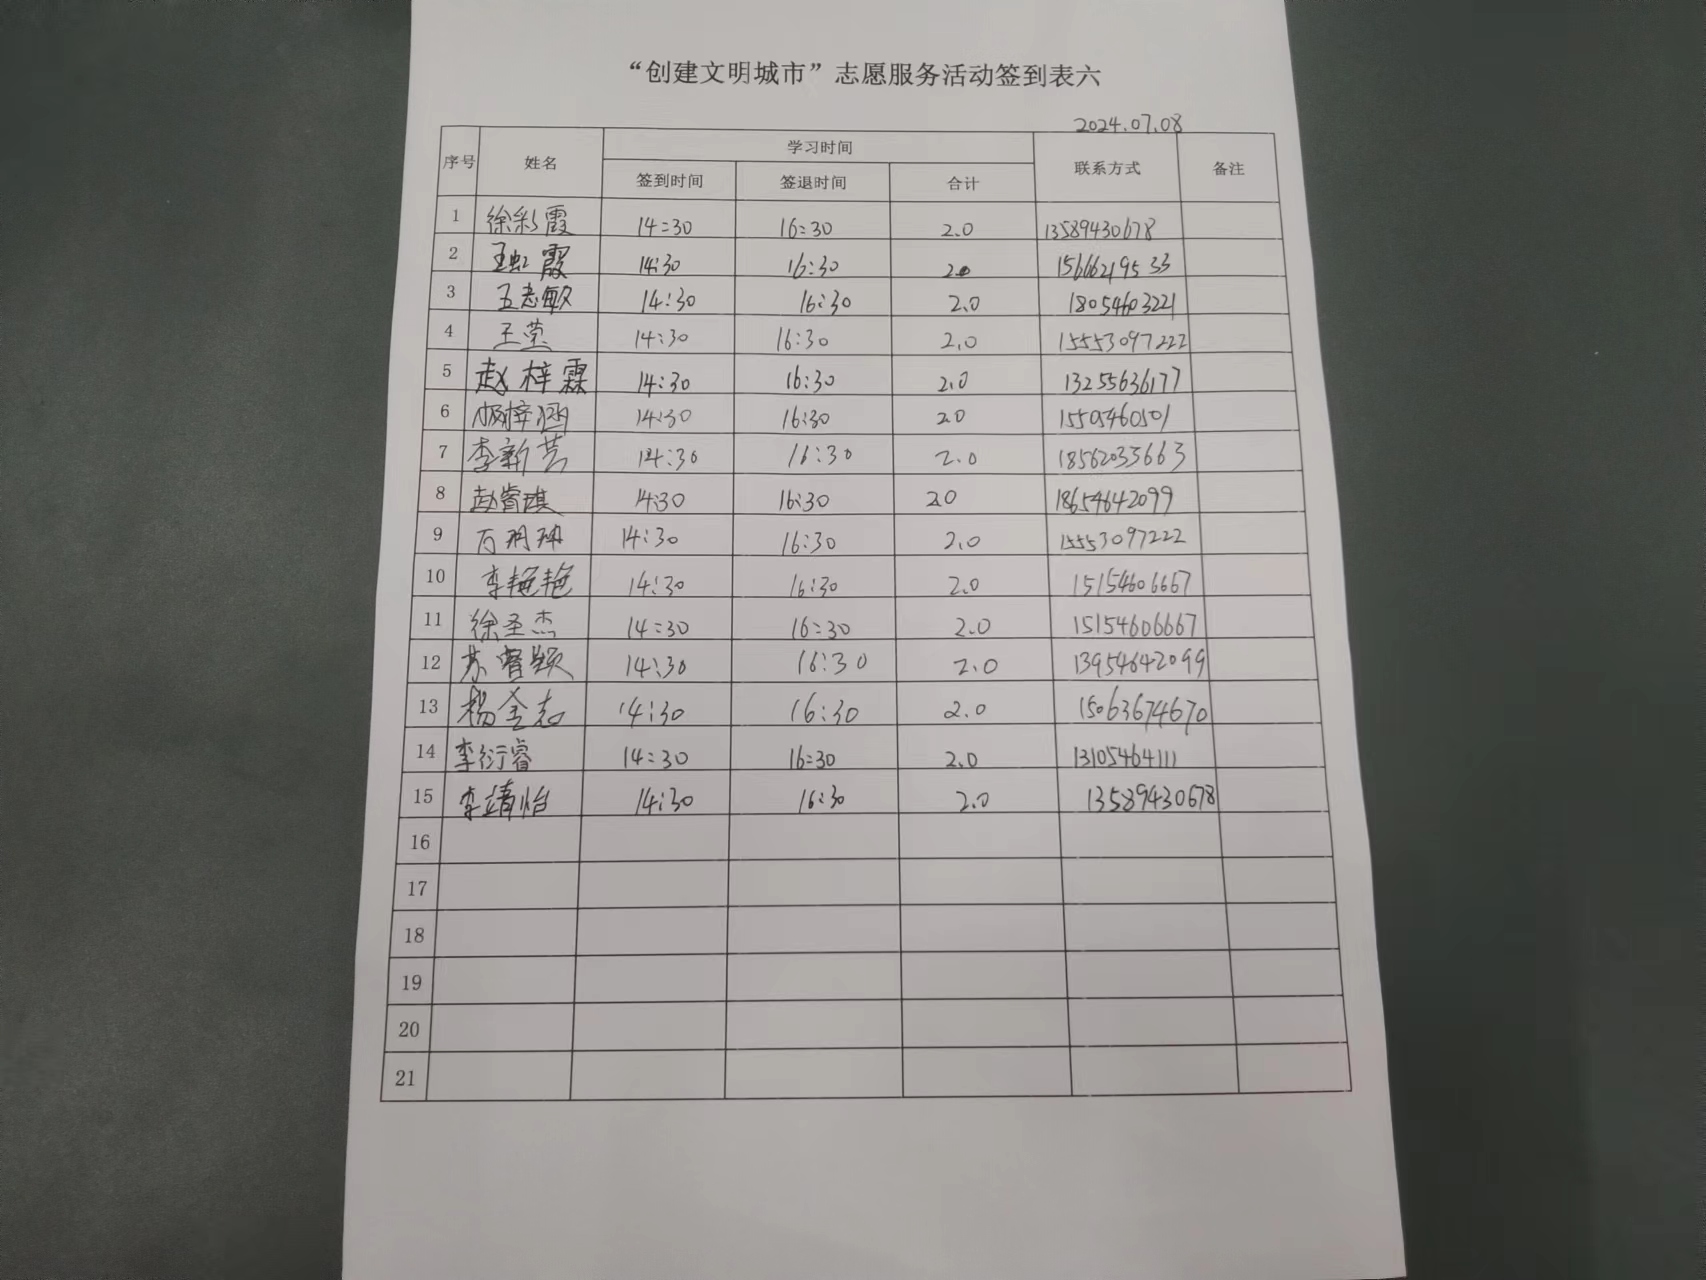 “创建文明城市”志愿服务活动签到表六
2024.07.08
序号 姓名 学习时间 联系方式 备注
签到时间 签退时间 合计
1 徐彩霞 14:30 16:30 2.0 13589430678
2 王虹霞 14:30 16:30 2.0 15666219533
3 王志敏 14:30 16:30 2.0 18054603221
4 王莹 14:30 16:30 2.0 15553097222
5 赵梓霖 14:30 16:30 2.0 13255636177
6 梓涵 14:30 16:30 2.0 15505460501
7 李新芸 14:30 16:30 2.0 18562035663
8 赵睿琪 14:30 16:30 20 18654642099
9 14:30 16:30 2.0 15553097222
10 李艳艳 14:30 16:30 2.0 15154606667
11 徐圣杰 14:30 16:30 2.0 15154606667
12 苏睿颖 14:30 16:30 2.0 13954642099
13 杨金志 14:30 16:30 2.0 15063674670
14 李衍睿 14:30 16:30 2.0 13105464111
15 李靖怡 14:30 16:30 2.0 13589430678
16
17
18
19
20
21